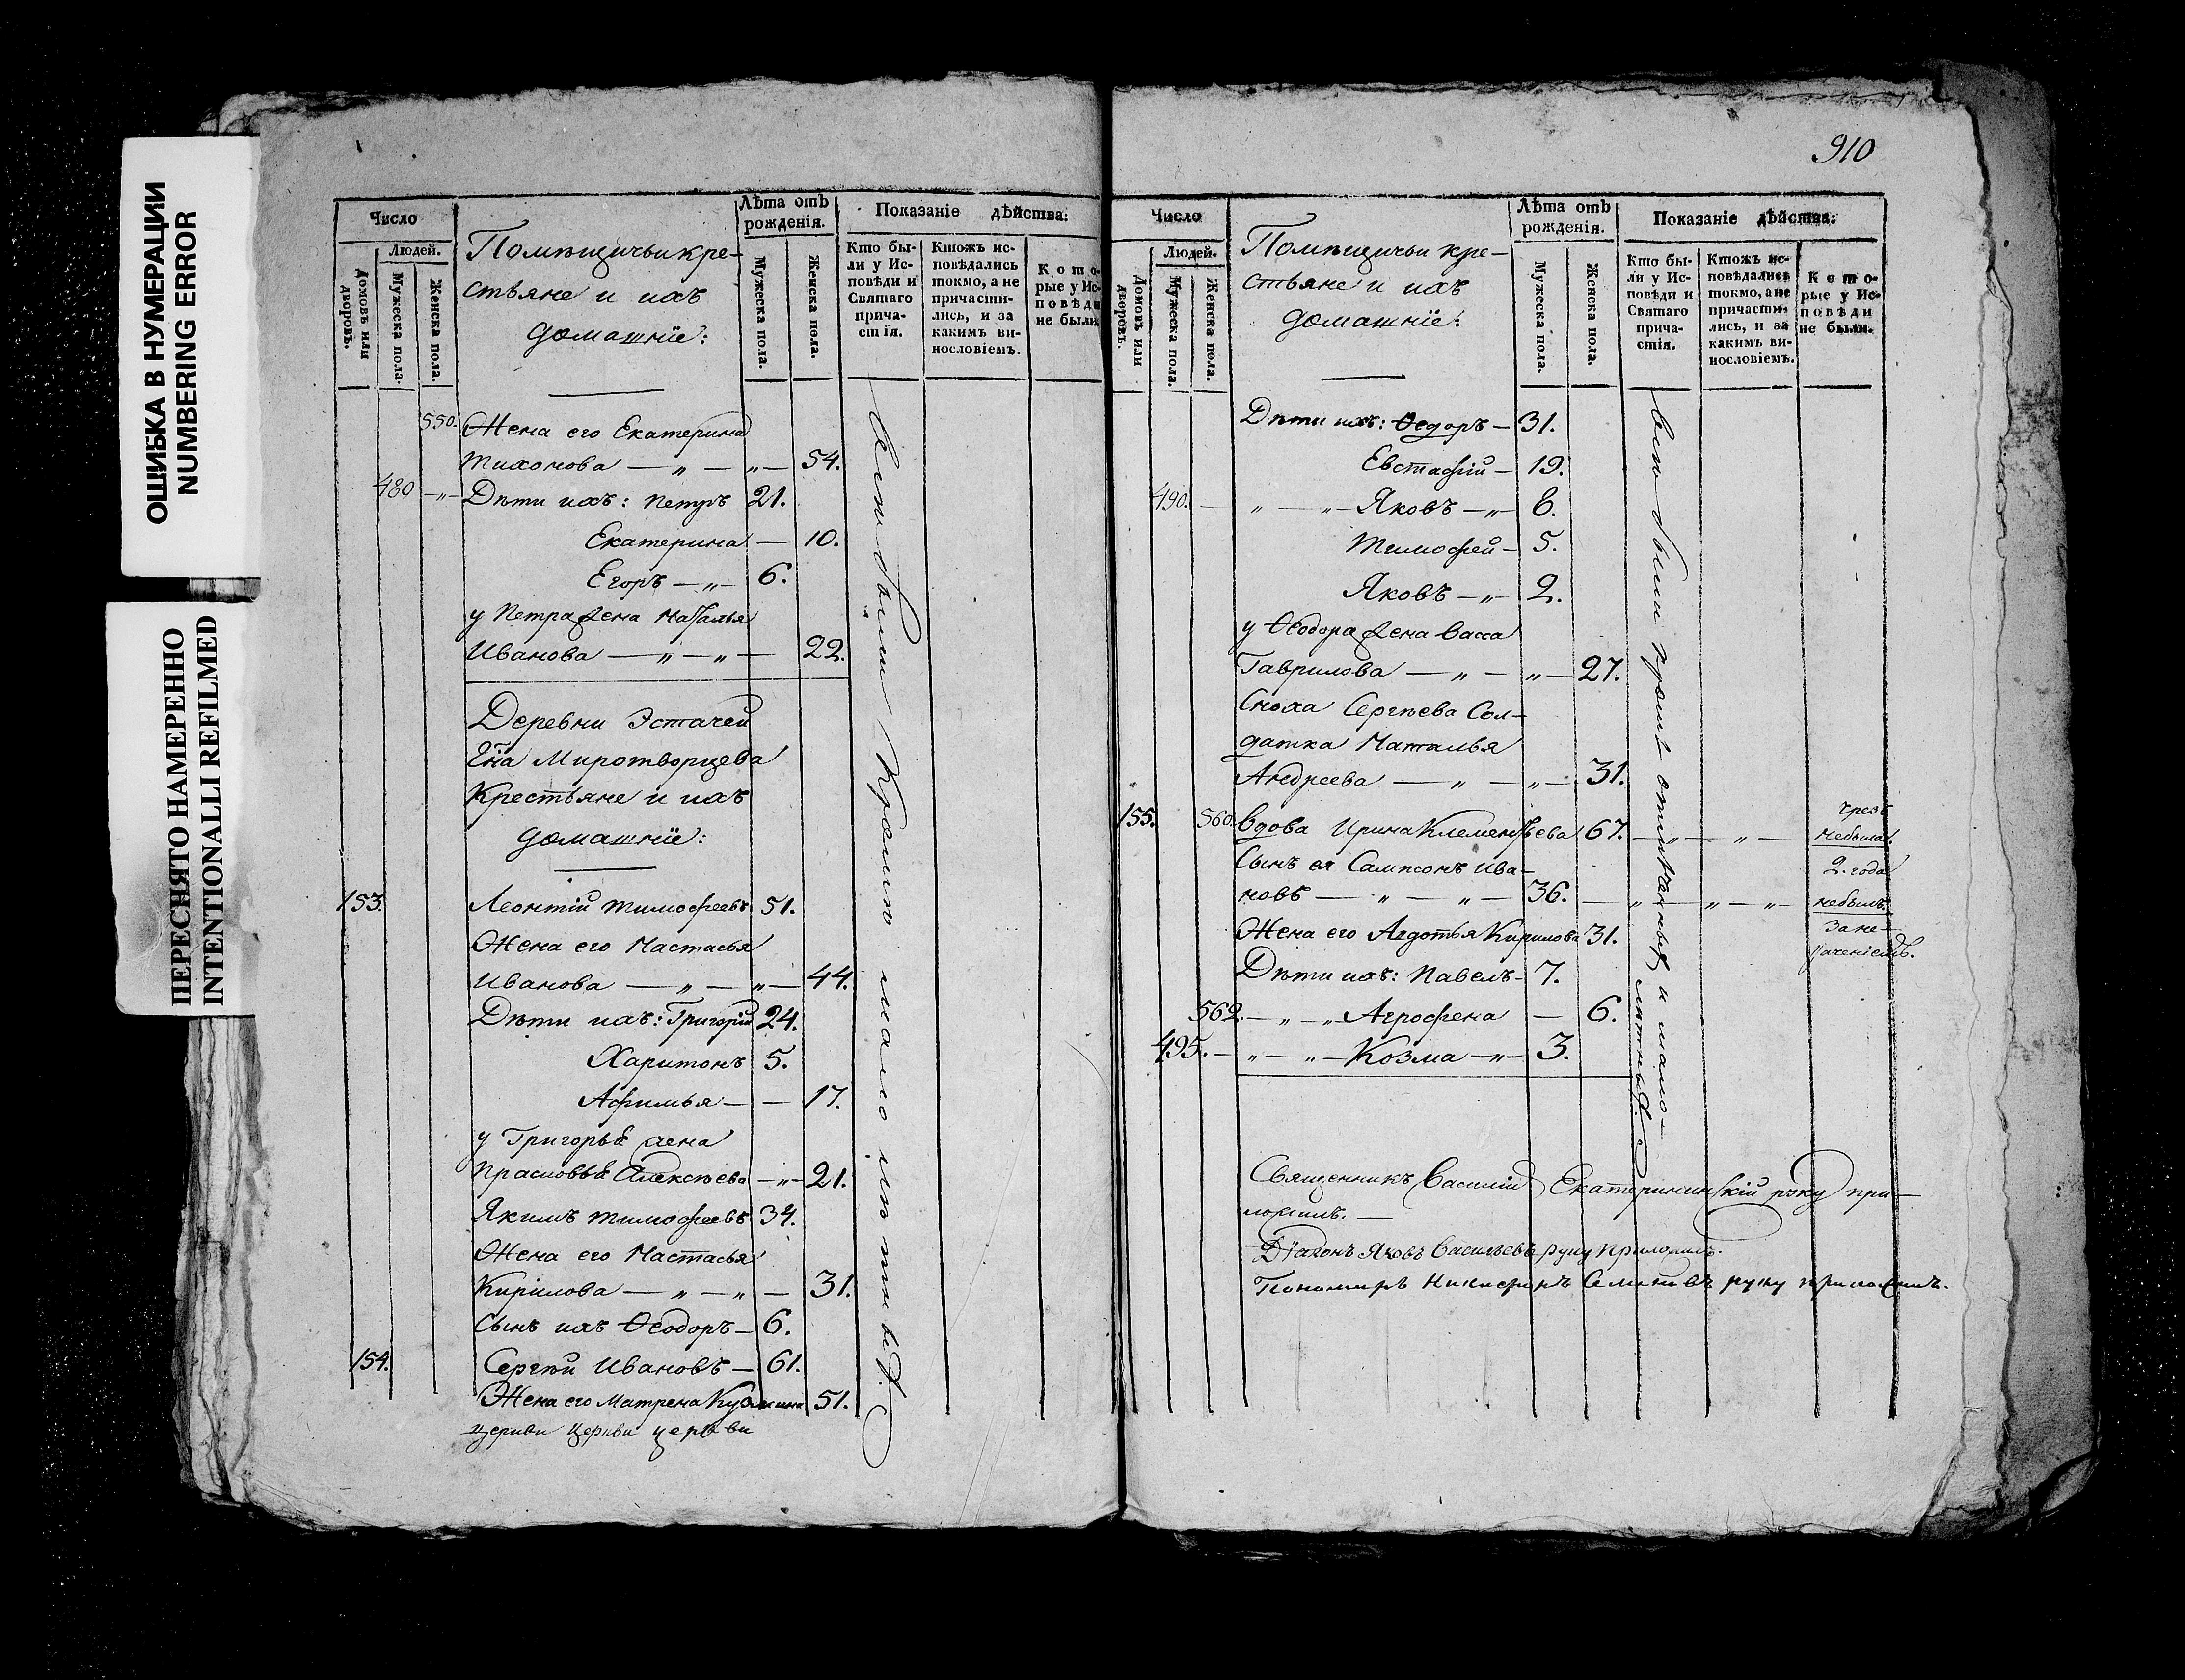 ОШИБКА В НУМЕРАЦИИ
NUMBERING ERROR
ПЕРЕСНЯТО НАМЕРЕННО
INTENTIONALLI REFILMED
Число
Людей.
Домовъ или дворовъ.
Мужеска пола.
Женска пола.
Помѣщичьи кре-
стьяне и ихъ
домашніе:
Лѣта отъ рожденія.
Мужеска пола.
Женска пола.
Показаніе дѣйства:
Кто бы-
ли у Ис-
повѣди и
Святаго
прича-
стія.
Ктожъ ис-
повѣдались
токмо, а не
причасти-
лись, и за
какимъ ви-
нословіемъ.
Кото-
рые у Ис-
повѣди
не были
550. Жена его Екатерина
Тихонова — „ — „ — 54.
480 — „ — Дѣти ихъ: Петръ 21.
Екатерина — 10.
Егоръ — „ — 6.
у Петра жена Наталья
Иванова — „ — „ — 22.
Деревни Эстачей
Гна Миротворцева
Крестьяне и ихъ
домашніе:
153. Леонтій Тимофеевъ 51.
Жена его Настасья
Иванова — „ — „ — 44.
Дѣти ихъ: Григорій 24.
Харитонъ 5.
Афимья — — 17.
у Григорья жена
Прасковья Алексѣева — „ — 21.
Якимъ Тимофеевъ 34.
Жена его Настасья
Кирилова — „ — „ — 31.
Сынъ ихъ Ѳеодоръ — 6.
154. Сергѣй Ивановъ — 61.
Жена его Матрена Кузмина 51.
церкви церкви церкви
были кромѣ малолѣтныхъ
910
Число
Людей.
Домовъ или дворовъ.
Мужеска пола.
Женска пола.
Помѣщичьи кре-
стьяне и ихъ
домашніе:
Лѣта отъ рожденія.
Мужеска пола.
Женска пола.
Показаніе дѣйства:
Кто бы-
ли у Ис-
повѣди и
Святаго
прича-
стія.
Ктожъ ис-
повѣдались
токмо, а не
причасти-
лись, и за
какимъ ви-
нословіемъ.
Кото-
рые у Ис-
повѣди
не были.
Дѣти ихъ: Ѳедоръ — 31.
Евстафій — 19.
490. — „ — „ — Яковъ — „ — 6.
Тимофей — 5.
Яковъ — „ — 2.
у Ѳеодора жена Васса
Гаврилова — „ — „ — 27.
Сноха Сергѣева Сол-
датка Наталья
Андреева — „ — „ — 31.
155. 560. Вдова Ирина Клементьева 67. — „ — „ —
Сынъ ея Сампсонъ Ива-
новъ — „ — „ — 36. — „ — „ — „ —
Жена его Авдотья Кирилова 31.
Дѣти ихъ: Павелъ — 7.
562. — „ — „ — Агрофена — 6.
495. — „ — „ — Козма — „ — 3.
чрезъ
небыла.
2. года
небылъ.
за не-
раченіемъ.
были кромѣ отмѣченныхъ и мало-
лѣтныхъ.
Священникъ Василій Екатерининскій руку при-
ложилъ. —
Діаконъ Яковъ Васильевъ руку приложилъ.
Пономарь Никифоръ Семеновъ руку приложилъ.